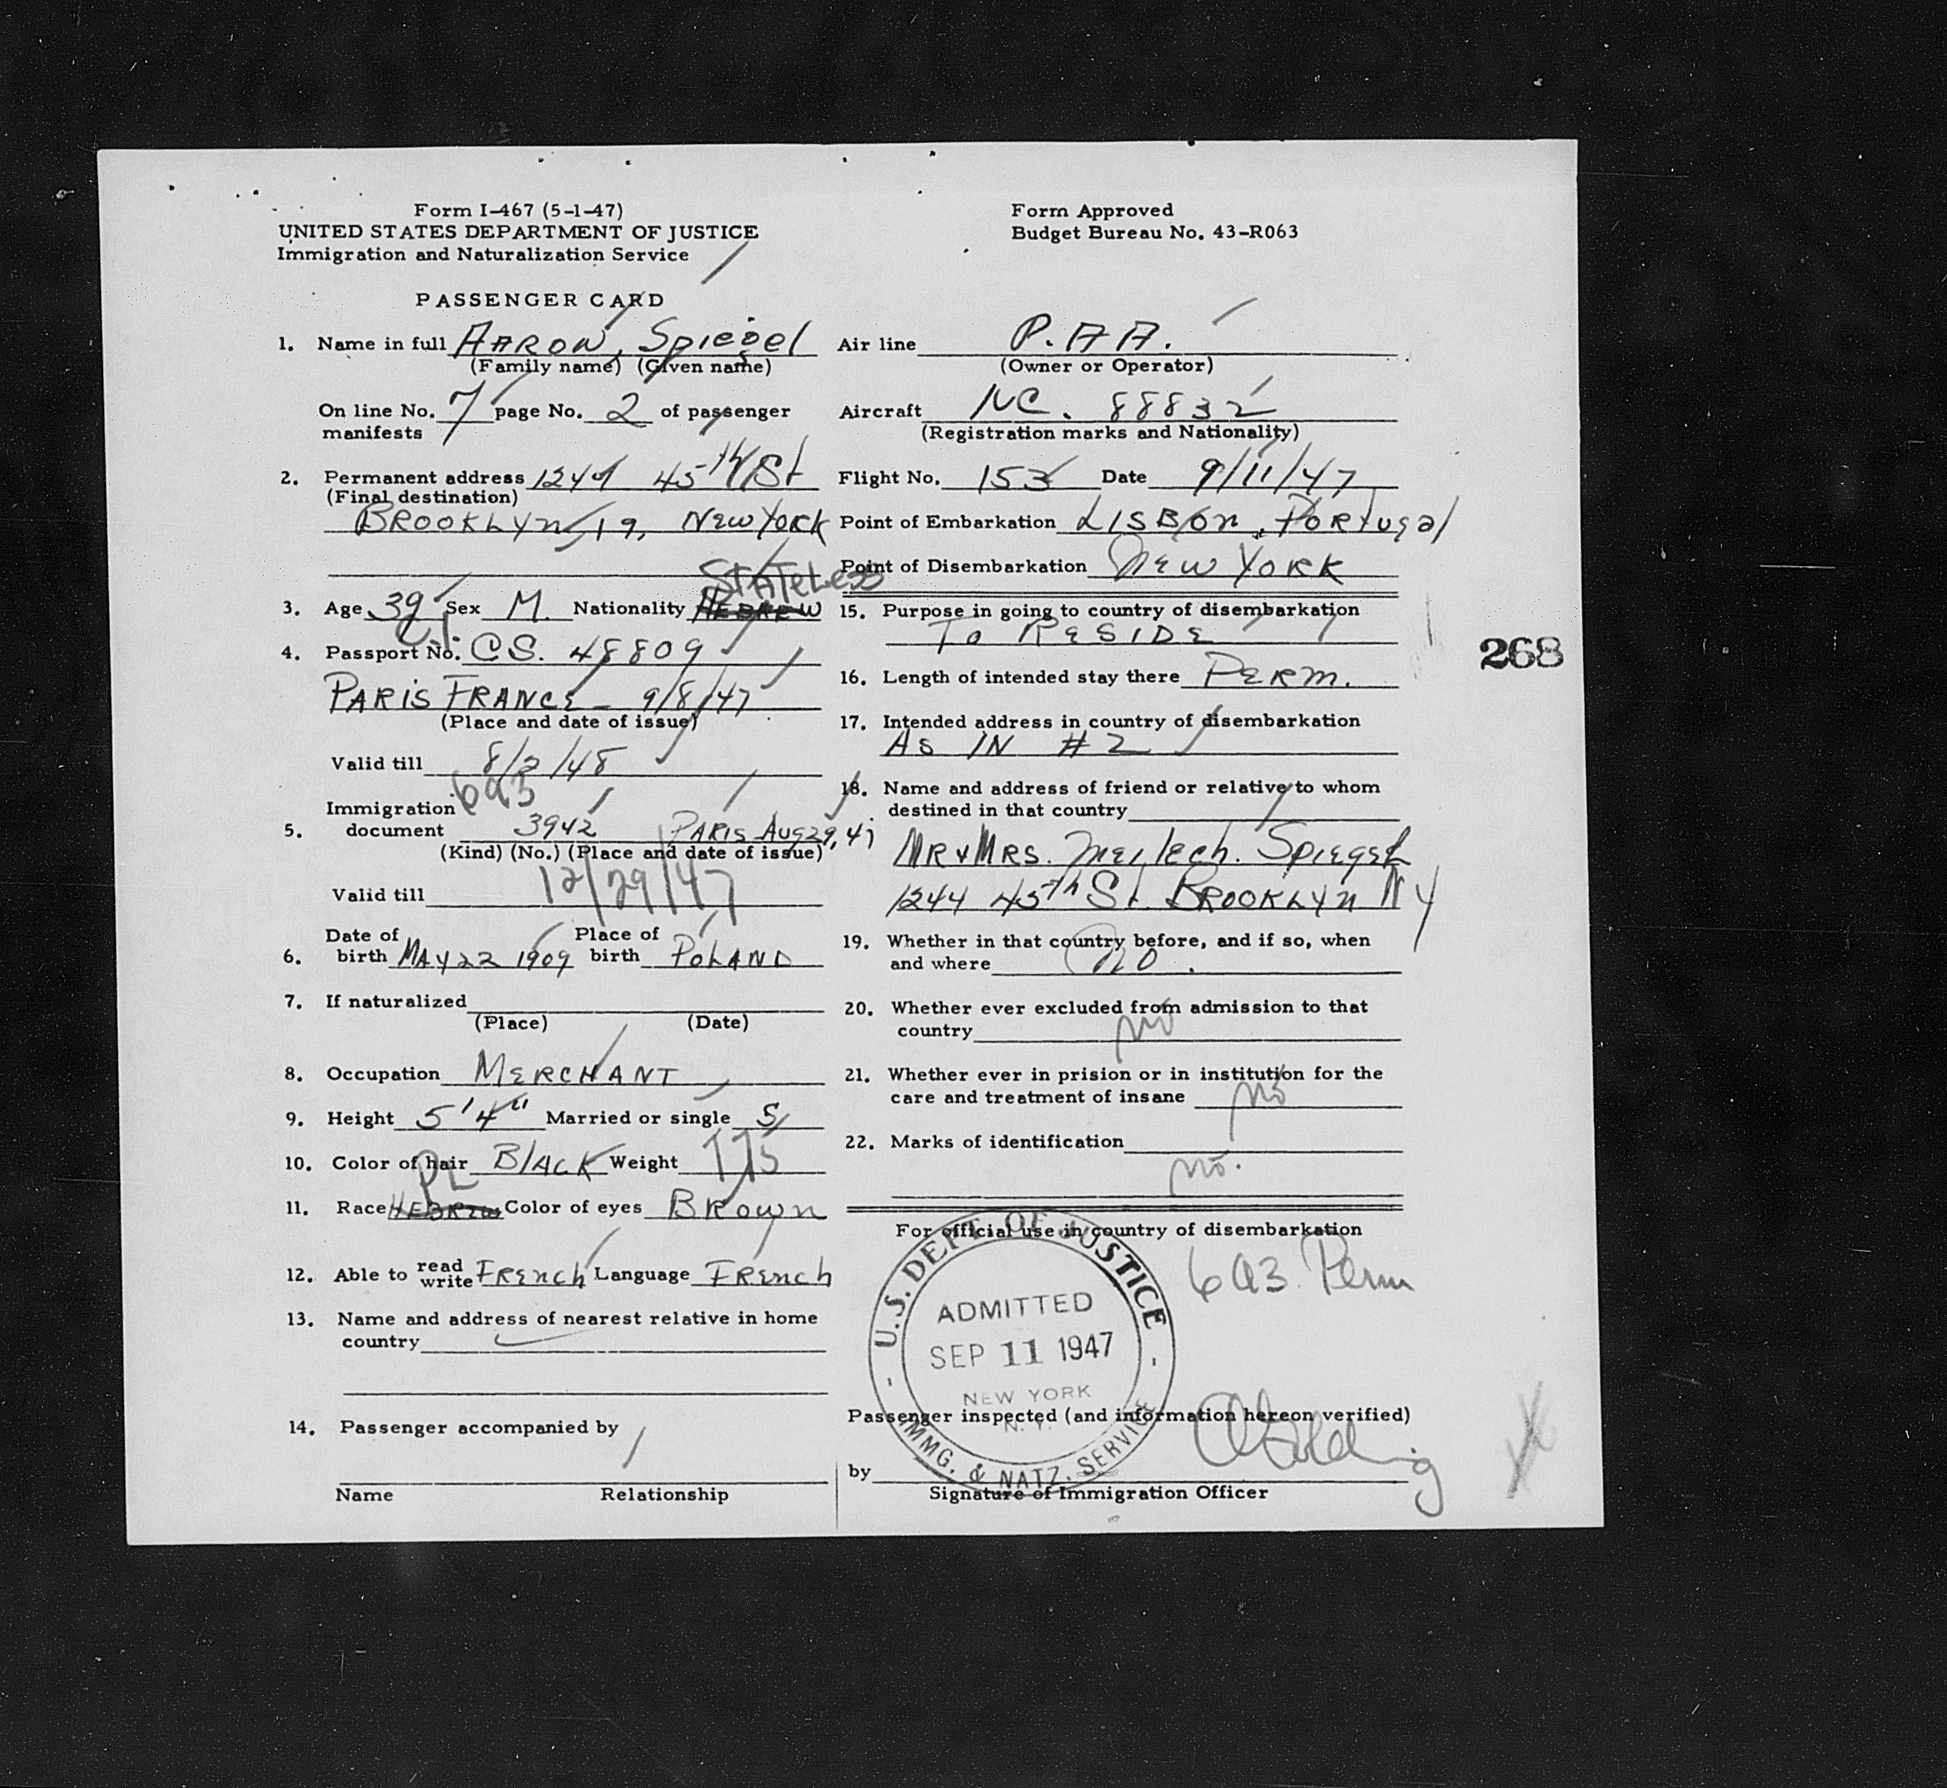 Form I-467 (5-1-47)
UNITED STATES DEPARTMENT OF JUSTICE
Immigration and Naturalization Service
PASSENGER CARD
1. Name in full AARON, Spiegel
(Family name) (Given name)
On line No. 7 page No. 2 of passenger
manifests
2. Permanent address 1244 45th St
(Final destination)
BROOKLYN 19, NEW YORK
STATELESS
3. Age 39 Sex M. Nationality HEBREW
4. Passport No. CS. 48809
PARIS FRANCE - 9/8/47
(Place and date of issue)
Valid till 8/2/48
6A3
Immigration
5. document 3942 PARIS Aug 29, 47
(Kind) (No.) (Place and date of issue)
12/29/47
Valid till
Date of Place of
6. birth MAY 22 1909 birth POLAND
7. If naturalized
(Place) (Date)
8. Occupation MERCHANT
9. Height 5'4" Married or single S
10. Color of hair BLACK Weight 175
PL
11. Race HEBREW Color of eyes BROWN
12. Able to read write FRENCH Language FRENCH
13. Name and address of nearest relative in home
country
14. Passenger accompanied by
Name Relationship
Form Approved
Budget Bureau No. 43-R063
Air line P.AA.
(Owner or Operator)
Aircraft NC. 88832
(Registration marks and Nationality)
Flight No. 153 Date 9/11/47
Point of Embarkation LISBON, PORTUGAL
Point of Disembarkation NEW YORK
15. Purpose in going to country of disembarkation
TO RESIDE
16. Length of intended stay there PERM.
17. Intended address in country of disembarkation
AS IN #2
18. Name and address of friend or relative to whom
destined in that country
MR & MRS. Meilech. SPIEGEL
1244 45th St. BROOKLYN NY
19. Whether in that country before, and if so, when
and where NO.
20. Whether ever excluded from admission to that
country no
21. Whether ever in prision or in institution for the
care and treatment of insane no
22. Marks of identification
no.
For official use in country of disembarkation
6A3. Perm
U.S. DEPT. OF JUSTICE
ADMITTED
SEP 11 1947
NEW YORK
N.Y.
IMMG. & NATZ. SERVICE
Passenger inspected (and information hereon verified)
by
Signature of Immigration Officer
268